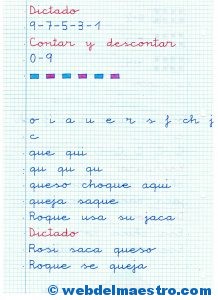 Dictado
9-7-5-3-1
Contar y descontar
0-9
o i a u e r s f ch j
c
que qui
qu qu qu
queso choque aquí
queja saque
Roque usa su jaca
Dictado
Rosi saca queso
Roque se queja
© webdelmaestro.com